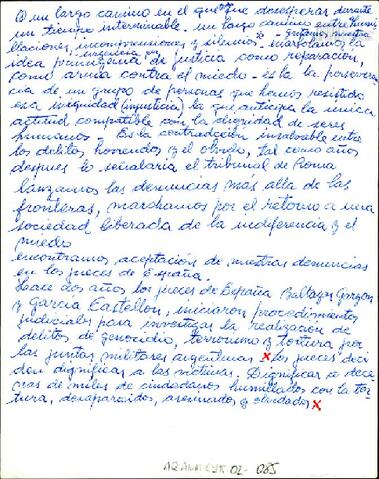 ① un largo camino en el que desesperar durante
un tiempo interminable. un largo camino entre humi
llaciones, incomprensiones y silencios
idea primigenia de justicia como reparación,
como arma contra el miedo - es la la persevera
cia de un grupo de personas que hemos resistido
esa iniquidad (injusticia) la que anticipa la única
actitud compatible con la dignidad de seres
humanos - Es la contradicción insalvable entre
los delitos horrendos y el olvido, tal como años
despues lo señalaria el tribunal de Roma
lanzamos las denuncias mas alla de las
fronteras, marchamos por el retorno a una
sociedad liberada de la indiferencia y el
miedo
encontramos aceptación de nuestras denuncias
en los jueces de España.
hace dos años los jueces de España Baltazar Garzon
y Garcia Castellon, iniciaron procedimientos
judiciales para investigar la realización de
delitos de genocidio, terrorismo y tortura por
las juntas militares argentinas x los jueces deci
den dignificar a las victimas. Dignificar a dece
nas de miles de ciudadanos humillados con la tor
tura, desaparecidos, asesinados y olvidados x
ARANM CYR 02 - 085